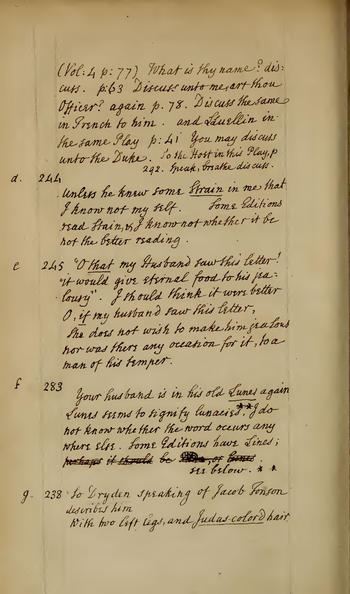 (Vol: 4 p: 77) What is thy name? dis-
cuss. p: 63 Discuss unto me, art thou
Officer? again p. 78. Discuss the same
in French to him. and Lluellin in
the same Play p: 41 You may discuss
unto the Duke. So the Host in this Play, p
292. Speak, breathe discuss.
d. 244
Unless he knew some Strain in me that
I know not my self. Some Editions
read Stain, & I know not whether it be
not the better reading.
e 245 "O that my Husband saw this letter!
"it would give eternal food to his jea-
lousy". I should think it were better
O, if my husband saw this letter,
She does not wish to make him jealous
nor was there any occasion for it, to a
man of his temper.
f 283
Your husband is in his old Lunes again
Lunes seems to signify lunacies. ** I do
not know whether the word occurs any
where else. Some Editions have Lines;
perhaps it should be or
see below. * *
g. 238 So Dryden speaking of Jacob Tonson
describes him
With two left legs, and Judas-color'd hair